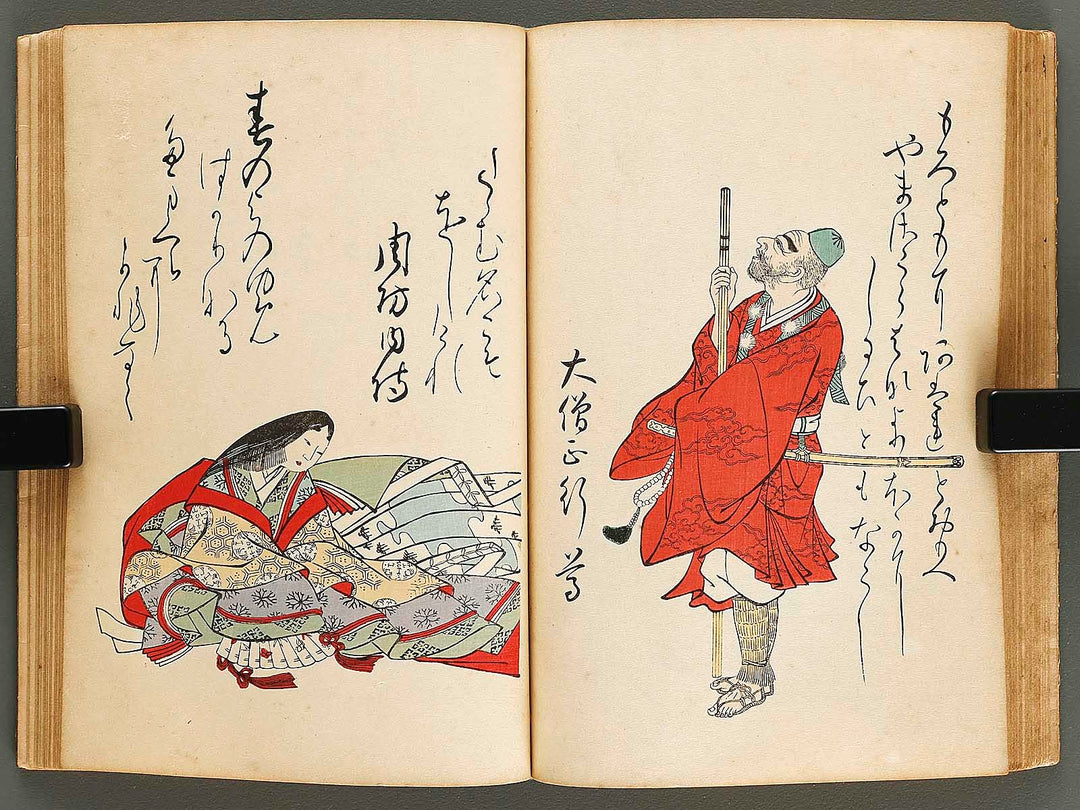 もろともにあはれとおもへ
やまさくらはなよりほかに
しるひともなし
大僧正行尊
春のよのゆめ
はかりなる
たまくらに
かひなく
たゝむ名こそ
をしけれ
周防内侍